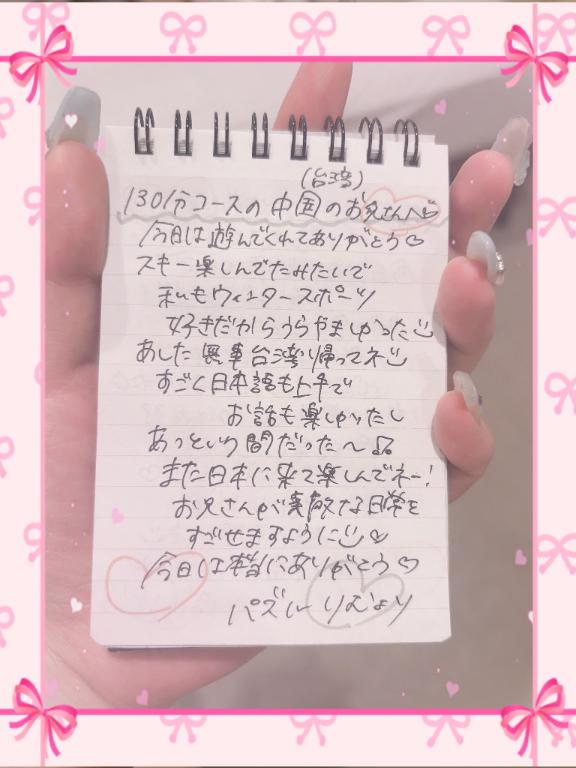 (台湾)
130分コースの中国のお兄さんへ♡
今日は遊んでくれてありがとう♡
スキー楽しんでたみたいで
私もウィンタースポーツ
好きだからうらやましかった
あした無事台湾帰ってネ
すごく日本語も上手で
お話も楽しかったし
あっという間だった〜♫
また日本に来て楽しんでネー!
お兄さんが素敵な日常を
すごせますように♡
今日は本当にありがとう♡
パズル りむより